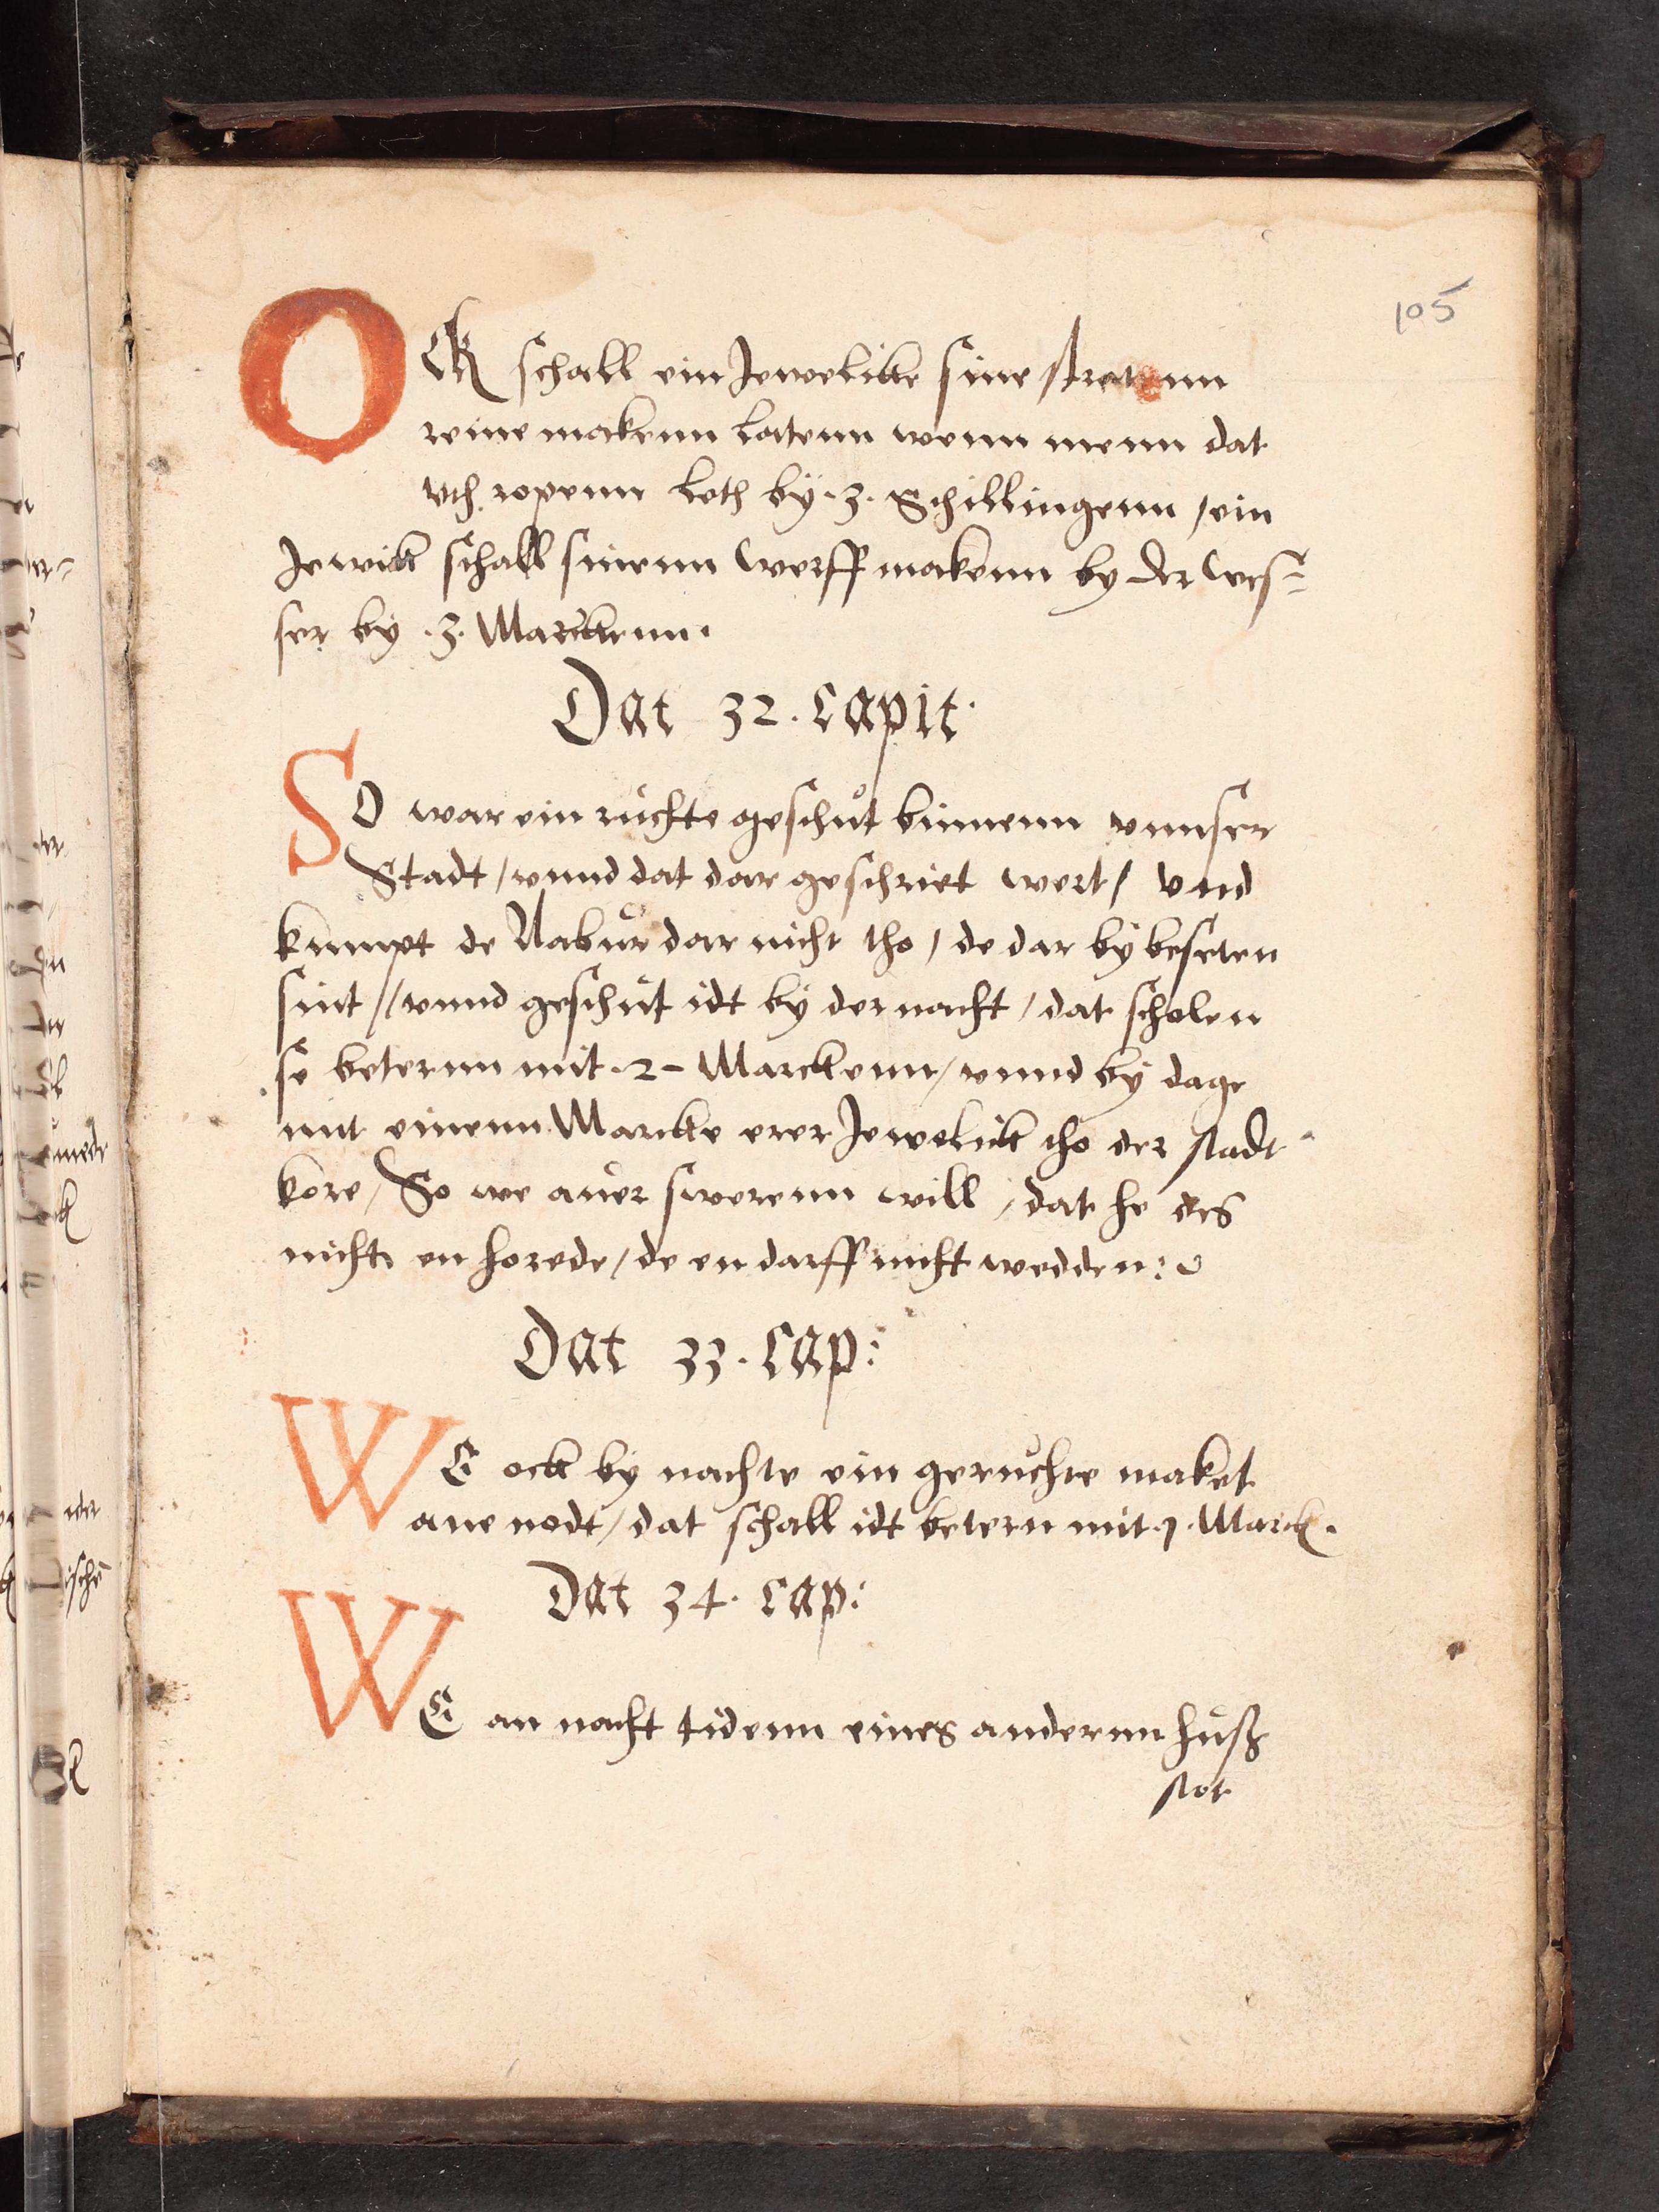 105
OCk schall ein Jewelicke sine stratenn
reine makenn latenn wenn menn dat
vth ropenn leth bÿ .3. Schillingenn / ein
Jewick schall sinenn werff makenn by der wes=
ser bÿ .3. Marckenn.
Dat 32. Capit.
SO war ein růchte geschůt binnenn vnnser
Stadt / vnnd dat dar geschriet wert / vnd
kumpt de Nabůr dar nicht tho / de dar bÿ beseten
sint // vnnd geschůt idt bÿ der nacht / dat scholen
se beternn mit .2 – Marckenn / vnnd bÿ dage
mit einenn Marcke erer Jewelick tho der stadt
kore / So we auer swerenn will / dat he des
nicht en horede / de en darff nicht wedden :
Dat 33. Cap:
WE ock bÿ nachte ein gerůchte maket
ane nodt / dat schall idt betern mit .1. Marck.
Dat 34. Cap:
WE an nacht tidenn eines andernn hůß
stot